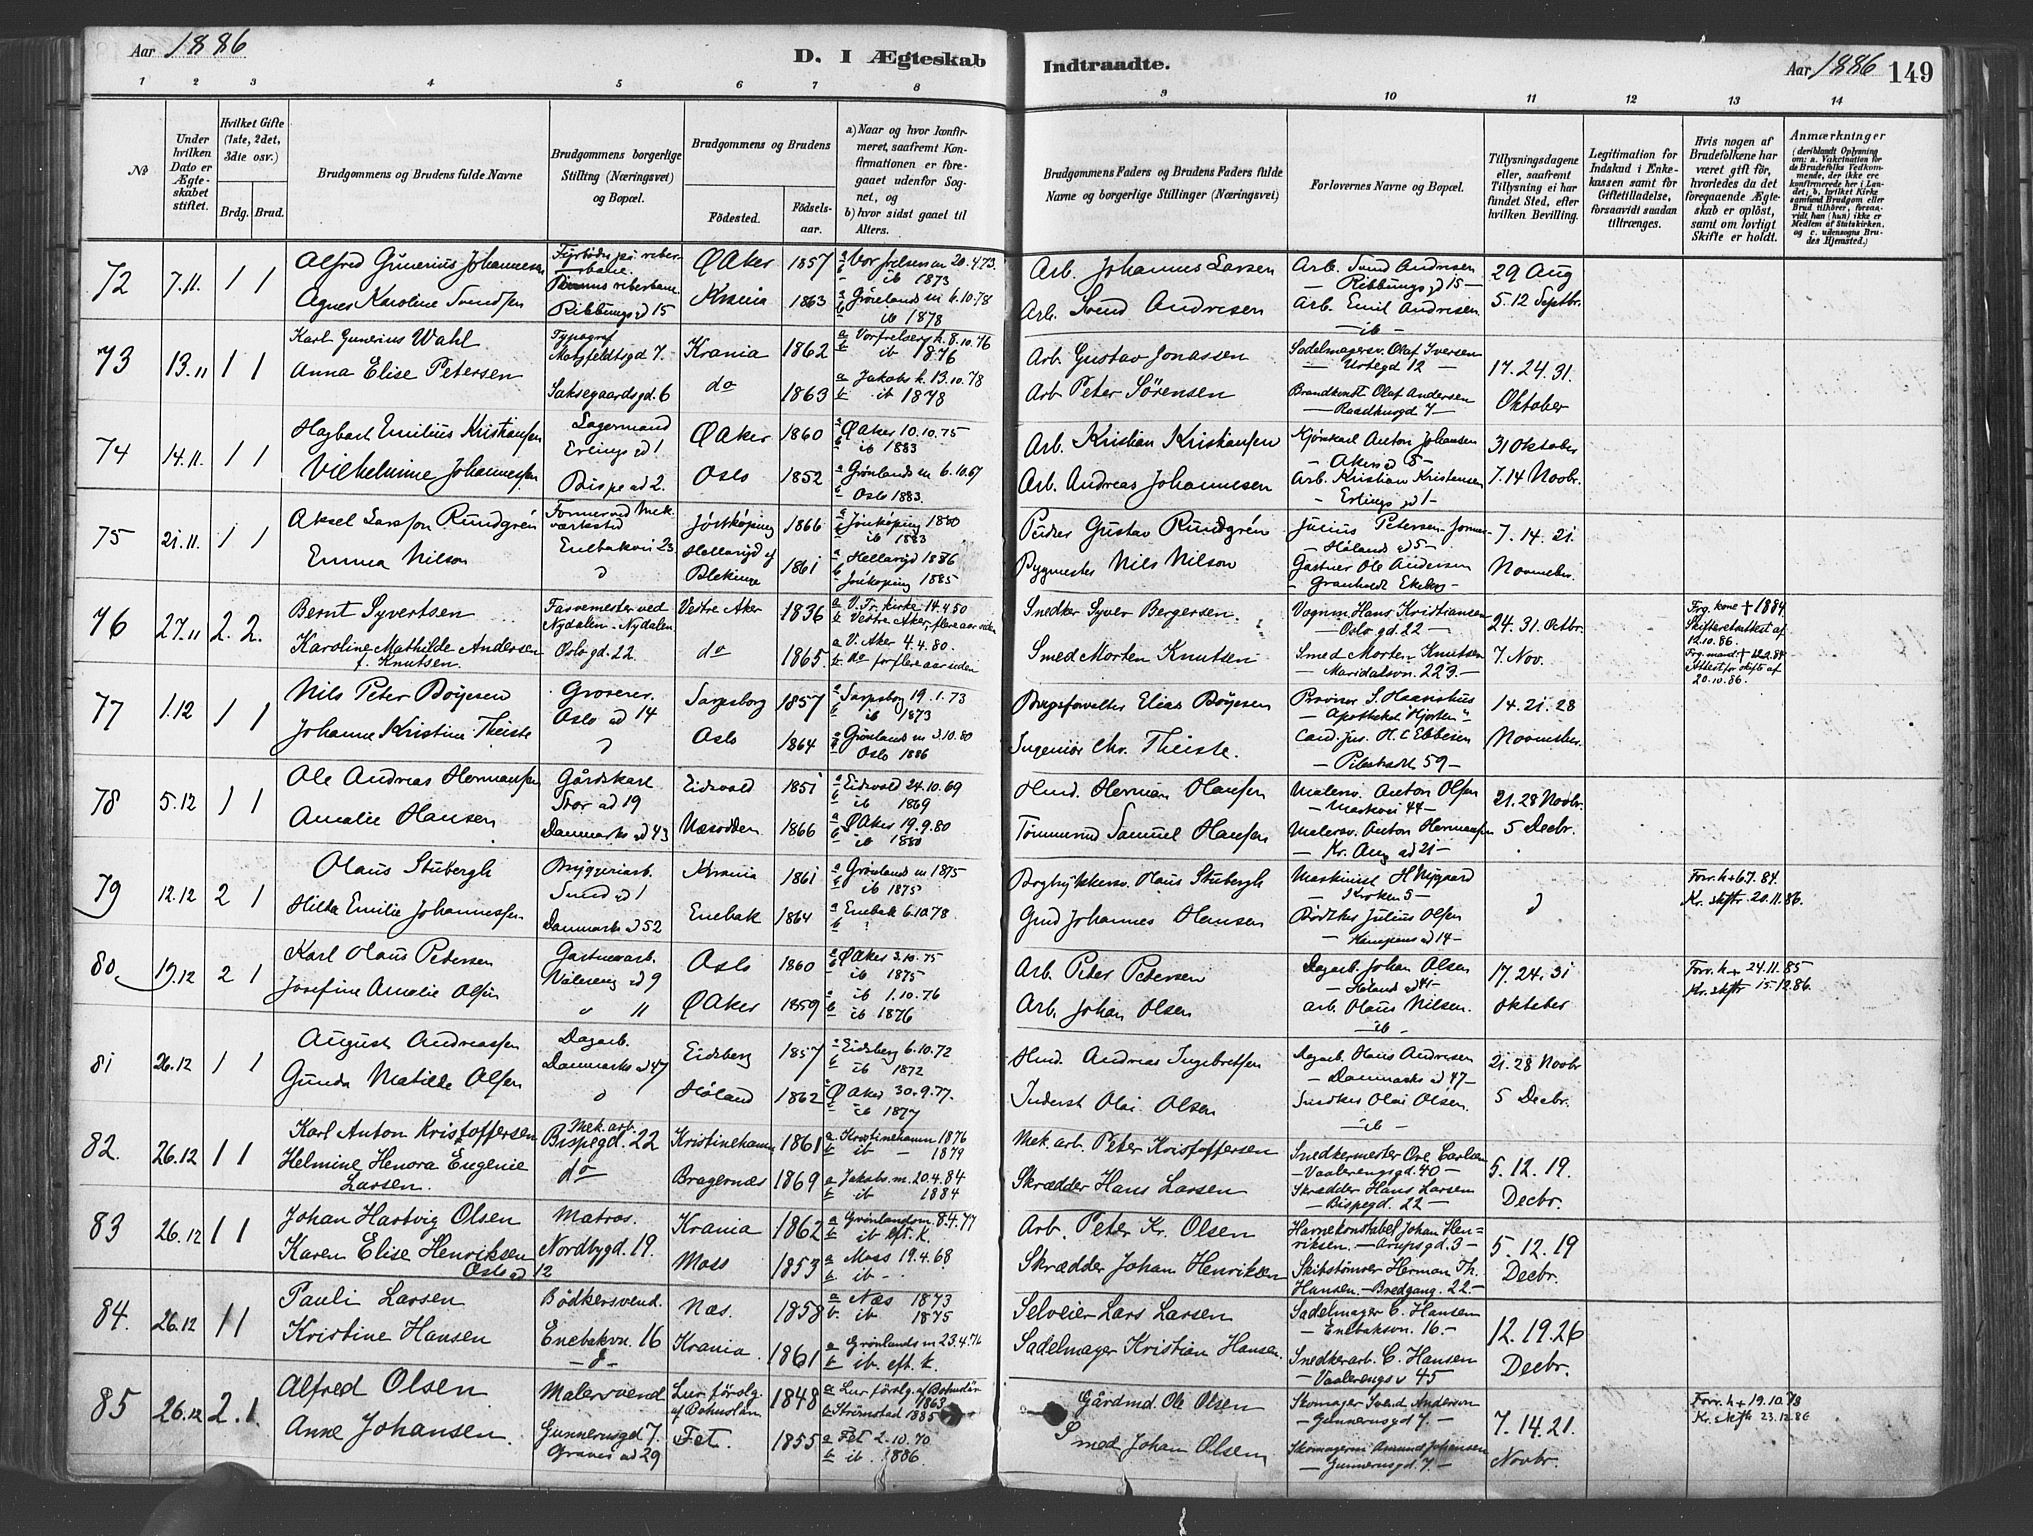 Aar 1886
D. I Ægteskab Indtraadte.
Aar 1886 149
1 2 3 4 5 6 7 8 9 10 11 12 13 14
No
Under hvilken Dato er Ægteskabet stiftet.
Hvilket Gifte (1ste, 2det, 3die osv.)
Brdg. Brud.
Brudgommens og Brudens fulde Navne
Brudgommens borgerlige Stilling (Næringsvei) og Bopæl.
Brudgommens og Brudens
Fødested.
Fødselsaar.
a) Naar og hvor konfirmeret, saafremt Konfirmationen er foregaaet udenfor Sognet, og
b) hvor sidst gaaet til Alters.
Brudgommens Faders og Brudens Faders fulde Navne og borgerlige Stillinger (Næringsvei)
Forlovernes Navne og Bopæl.
Tillysningsdagene eller, saafremt Tillysning ei har fundet Sted, efter hvilken Bevilling.
Legitimation for Indskud i Enkekassen samt for Giftetilladelse, forsaavidt saadan tiltrænges.
Hvis nogen af Brudefolkene har været gift før, hvorledes da det foregaaende Ægteskab er opløst, samt om lovligt Skifte er holdt.
Anmærkninger (deriblandt Oplysning om: a. Vakcination for de Brudefolks Vedkommende, der ikke ere konfirmerede her i Landet; b. hvilket Kirkesamfund Brudgom eller Brud tilhører, forsaavidt han (hun) ikke er Medlem af Statskirken, og c. udensogns Brudes Hjemsted.)
72 7.11. 1 1 Alfred Gunerius Johannesen
Agnes Karoline Svendsen
Ribbungs gd 15
Ø Aker 1857 a Vor frelsers m 20.4.73.
b ib 1873
Krania 1863 a Grønlands m 6.10.78
b ib 1878
Arb. Johannes Larsen
Arb. Svend Andresen
Arb. Svend Andresen
— Ribbungs gd 15 —
Arb. Emil Andresen
— ib —
29 Aug
5. 12 Septbr.
73 13.11 1 1 Karl Gunerius Wahl
Anna Elise Petersen
Typograf
Motzfeldtsgd. 7.
Saksegaardsgd. 6
Krania 1862 a Vorfrelsers k. 8.10.76
b ib 1876
do 1863 a Jakobs k. 13.10.78
b ib 1878
Arb. Gustav Jonassen
Arb Peter Sørensen
Sadelmagersv. Olaf Iversen
— Urtegd 12 —
Brandkonst. Olaf Andersen
— Raadhusgd 7 —
17. 24. 31.
Oktober
74 14.11. 1 1 Hagbart Emilius Kristiansen
Vilhelmine Johannessen
Lagermand
Erlings gd 1
Bispe gd 2.
Ø Aker 1860 a Ø Aker 10.10.75
b ib 1883
Oslo 1852 a Grønlands m 6.10.67
b Oslo 1883.
Arb. Kristian Kristiansen
Arb. Andreas Johannesen
Kjørekarl Anton Johansen
— Akers gd 5 —
Arb. Kristian Kristensen
— Erlings gd 1 —
31 Oktober
7. 14 Novbr.
75 21.11. 1 1 Aksel Larsson Rundgrén
Emma Nilson
Former ved Mek.
værksted
Enebakvei 23
Jönköping 1866 a Jönköping 1880
b ib 1883
Hellaryd af
Blekinge 1861 a Hellaryd 1886
b Jönköping 1885.
Gustav Rundgrén
Bygmester Nils Nilson
Julius Petersen
— Hølands gd 5 —
Gartner Ole Andersen
7. 14. 21.
Novmebr.
76 27.11 2. 2. Bernt Syvertsen
Karoline Mathilde Andersen
f. Knutsen.
Farvemester ved
Nydalen - Nydalen.
Oslo gd. 22.
Vestre Aker 1836 a V. Fr. kirke 14.4.50
b Vestre Aker, flere aar siden
do 1865 a V. Aker 4.4.80.
b do for flere aar siden
Snedker Syver Bergersen.
Smed Morten Knutsen
Vognm. Hans Kristiansen
— Oslo gd. 22 —
Smed Morten Knutsen
— Maridalsvn. 223. —
24. 31. Octbr.
7 Nov.
Frg. kone + 1884
Skifteretsattest af
12.10.86.
Frg. mand + 22.2.84
Attest for skifte af
20.10.86.
77 1.12 1 1 Nils Peter Boyesen
Johanne Kristine Theiste
Grosserer.
Oslo gd 14
Sarpsborg 1857 a Sarpsborg 19.1.73
b ib 1873
Oslo 1864 a Grønland m 3.10.80
b Oslo 1886
Bergsforvalter Elias Boyesen
Ingeniør Chr. Theiste.
Provisor S. Haanshus
— Apotheket "Hjorten" —
Cand. jur. H. C Ebbesen
— Pilestrædt 59 —
14. 21. 28
Novmebr.
78 5.12 1 1 Ole Andreas Hermansen
Amalie Hansen
Gårdskarl
Stor gd 19
Danmarks gd 43
Eidsvold 1851 a Eidsvold 24.10.69
b ib 1869
Næsodden 1866 a Ø Aker 19.9.80
b ib 1880
Hmd. Herman Hansen
Tømmermd Samuel Hansen
Malersv. Anton Olsen
— Markvei 44 —
Malersv. Anton Hermansen
— Kr. Aug gd 21 —
21. 28 Novbr.
5 Decbr.
79 12.12 2 1 Olaus Stubergh
Hilda Emilie Johannessen
Bryggeriarb.
Sund gd 1
Danmarks gd 52
Krania 1861 a Grønland m 1875
b ib 1875
Enebak 1864 a Enebak 6.10.78.
Bogtrykkersv. Olaus Stubergh
Gmd Johannes Hansen
Maskinist H Nygaard
— Kroken 5 —
Bødker Julius Olsen
— Kampens gd 14 —
Forr. h + 6.7.84.
Kr. skiftr 20.11.86.
80 19.12 2 1 Karl Olaus Pedersen
Josefine Amalie Olsen
Gartnerarb.
Valereng gd 9
" "
Oslo 1860 a Ø Aker 3.10.75
b ib 1875
Ø Aker 1859 a ib 1.10.76
b ib 1876
Arb. Peter Petersen
Arb. Johan Olsen
Dagarb. Johan Olsen
— Høland gd 41 —
arb. Olaus Nilsen.
— ib —
17. 24. 31
Oktober
Forr. h + 24.11.85
Kr. skiftr 15.12.86.
81 26.12 1 1 August Andreassen
Gunda Matilde Olsen
Dagarb.
Danmarks gd 47
Eidsberg 1857 a Eidsberg 6.10.72
b ib 1872
Høland 1862 a Ø Aker 30.9.77.
b ib 1877
Hmd. Andreas Ingebretsen
Inderst Olai Olsen
Dagarb. Hans Andresen
— Danmarks gd 47 —
Snedker Olai Olsen.
— ib —
21. 28 Novbr
5 Decbr.
82. 26.12 1 1 Karl Anton Kristoffersen
Helmine Henora Eugenie
Larsen.
Mek. arb.
Bispegd. 22
do
Kristinehamn 1861 a Kristinehamn 1876
b ib — 1879
Bragernæs 1869 a Jakobs m. 20.4.84
b ib 1884
Mek. arb. Peter Kristoffersen
Skrædder Hans Larsen
Snedkermester Ove Carlsen
— Vaalerengsgd. 40 —
Skrædder Hans Larsen
— Bispegd. 22 —
5. 12. 19.
Decbr.
83 26.12 1 1 Johan Hartvig Olsen
Karen Elise Henriksen
Oslo gd 12
Matros.
Nordbygd. 19.
Krania 1862 a Grønlandsm. 8.4.77
b ib eft. k.
Moss 1853 a Moss 19.4.68
b ib -.
Arb. Peter Kr. Olsen
Skrædder Johan Henriksen
Havnekonstabel Johan Hen=
riksen. — Arupsgd. 3 —
Skibstømrer Herman Th.
Hansen. — Bredgang. 22 —
5. 12. 19
Decbr.
84. 26.12 1 1 Pauli Larsen
Kristine Hansen
Bødkersvend.
Enebakvn. 16
Næs. 1858 a Næs 1873
b. ib 1875
Krania 1861 a Grønlands m 23.4.76
b ib. eft. k.
Selveier Lars Larsen
Sadelmager Kristian Hansen.
Sadelmager C. Hansen
— Enebaksvn. 16. —
Snedkerarb. C. Hansen
— Vaalerengs v 45
12. 19. 26
Decbr.
85 26.12 2. 1. Alfred Olsen
Anne Johansen.
Malersvend
Gunnerusgd 7.
Graves gd 29
Lur försg.
af Bohuslän 1848 a Lur försg. af Bohuslän
1863
b Strömstad 1885
Fet. 1855 a Fet 2.10.70
b ib. 1886.
Gårdmd. Ole Olsen
Smed Johan Olsen
Skomager Svend Anderson
— Gunnerusgd 7. —
Skomagersv Amund Johansen
— Gunnerusgd. 7 —
7. 14. 21.
Novbr.
Forr. h + 19.10.78
Kr. skiftr 23.12.86